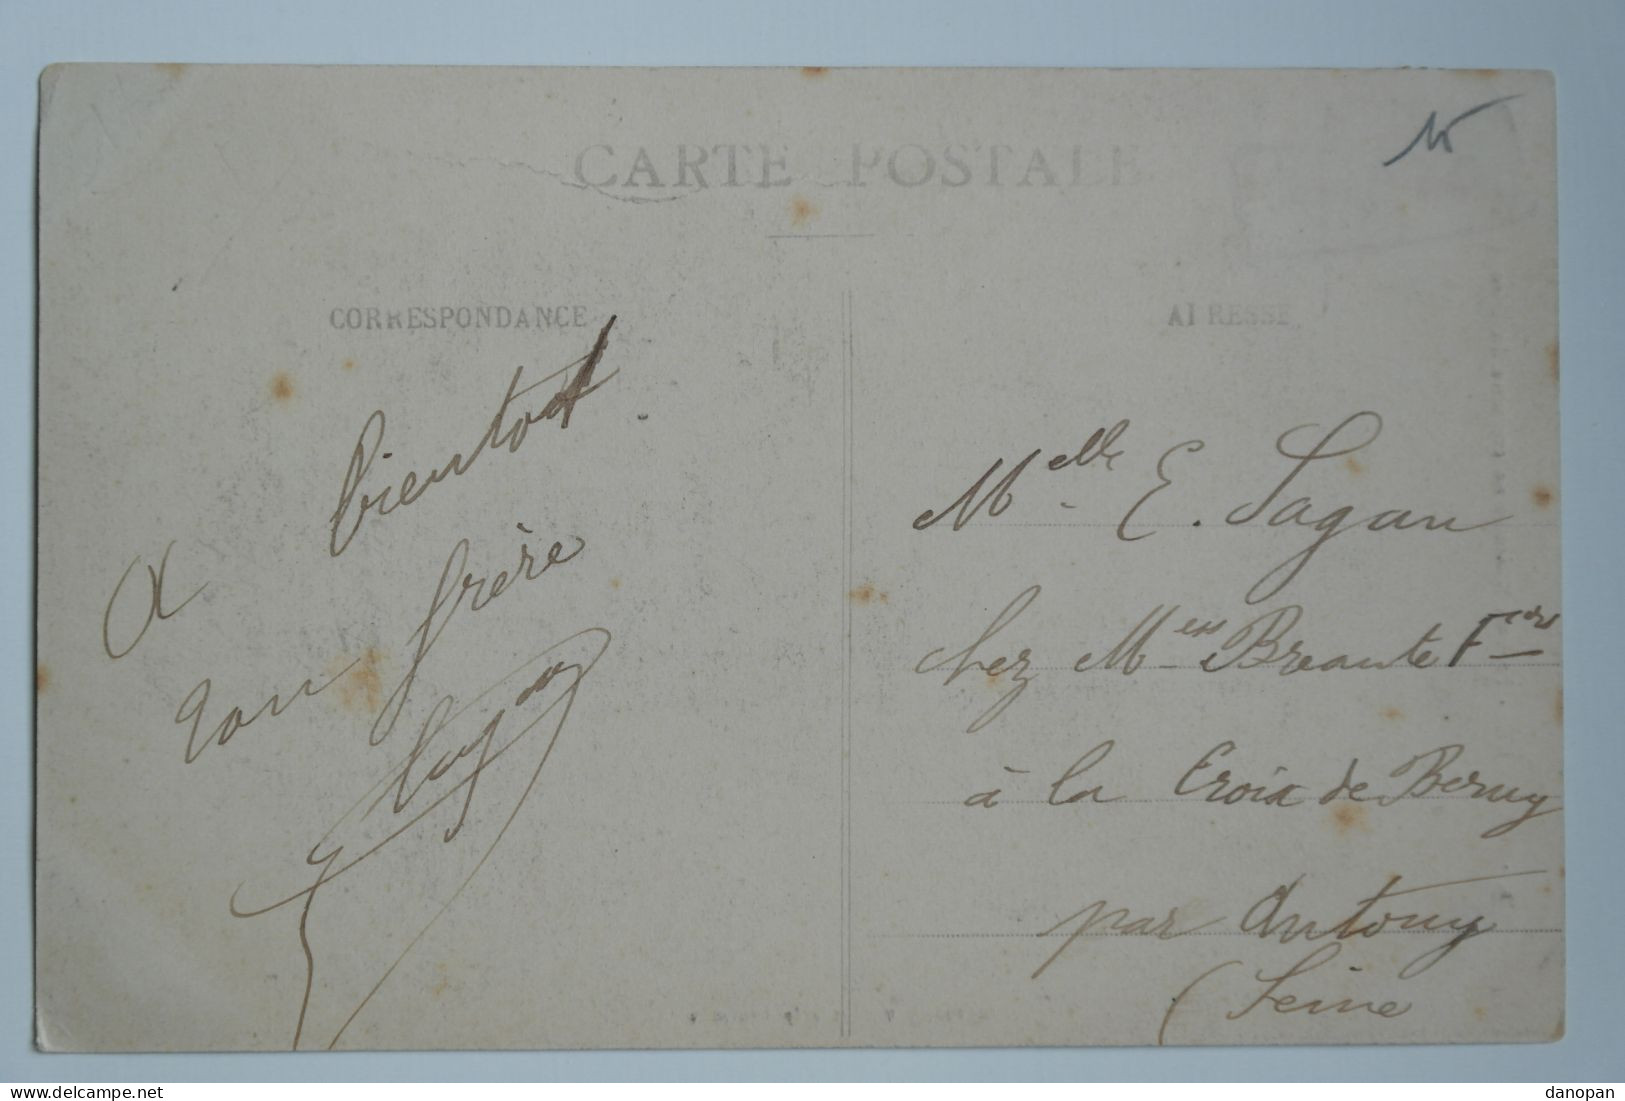 CARTE POSTALE
CORRESPONDANCE
A bientot
ton frère
Sagan
ADRESSE
Melle E. Sagan
chez Mess Breante Frères
à la Croix de Berny
par Antony
(Seine
delcampe.net
danopan